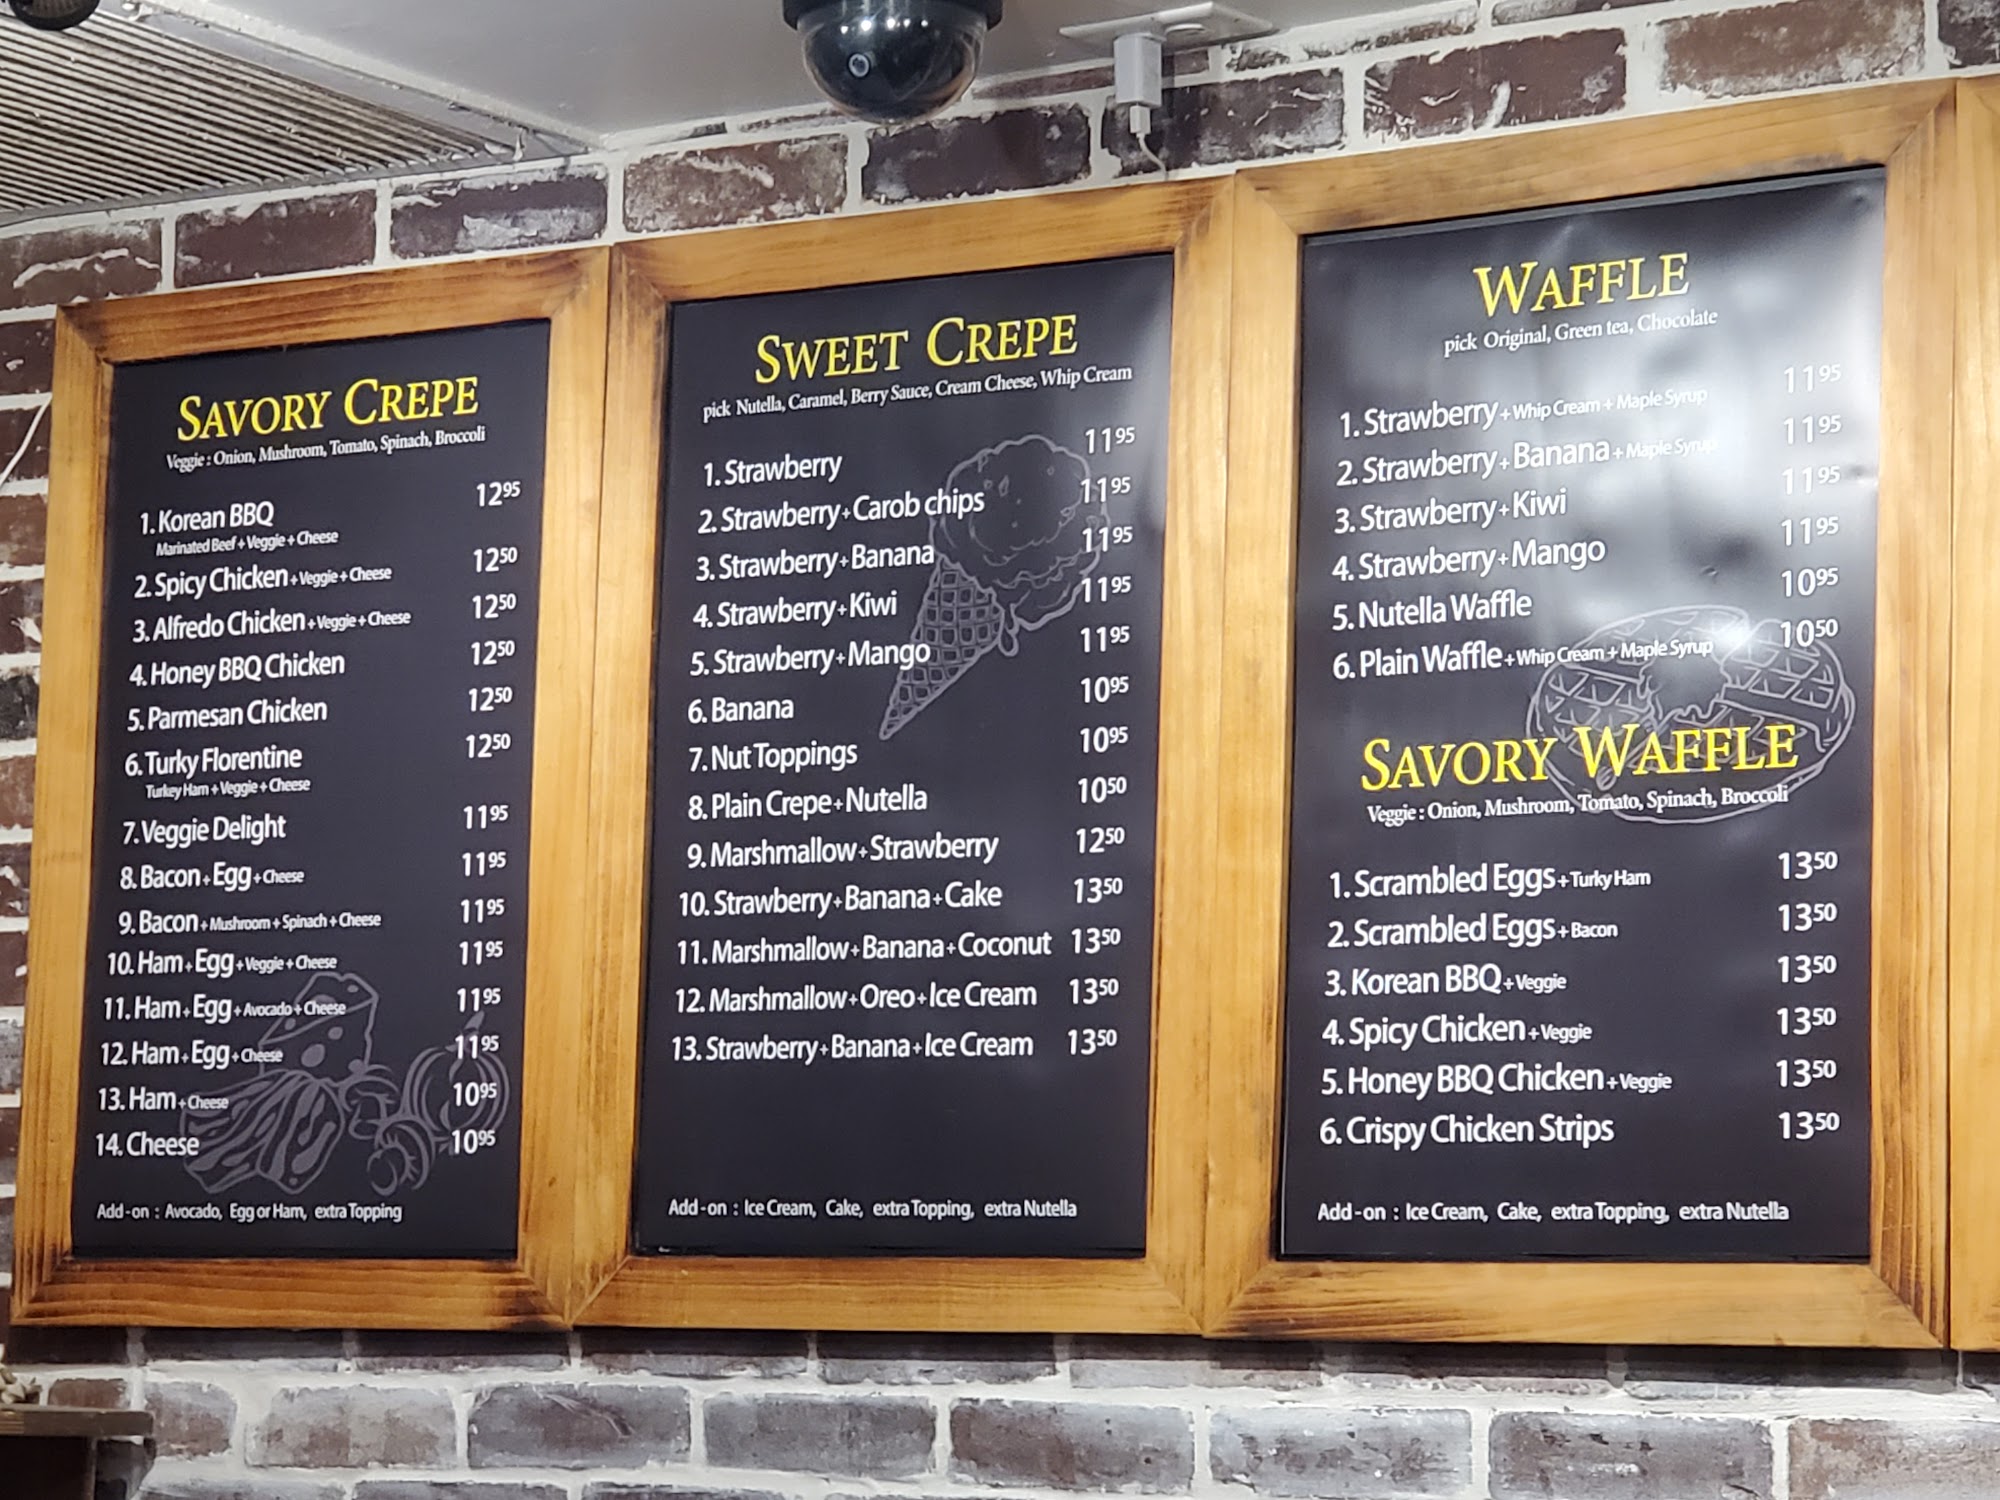 SAVORY CREPE
Veggie : Onion, Mushroom, Tomato, Spinach, Broccoli
1. Korean BBQ 12⁹⁵
Marinated Beef + Veggie + Cheese
2. Spicy Chicken + Veggie + Cheese 12⁵⁰
3. Alfredo Chicken + Veggie + Cheese 12⁵⁰
4. Honey BBQ Chicken 12⁵⁰
5. Parmesan Chicken 12⁵⁰
6. Turky Florentine 12⁵⁰
Turkey Ham + Veggie + Cheese
7. Veggie Delight 11⁹⁵
8. Bacon + Egg + Cheese 11⁹⁵
9. Bacon + Mushroom + Spinach + Cheese 11⁹⁵
10. Ham + Egg + Veggie + Cheese 11⁹⁵
11. Ham + Egg + Avocado + Cheese 11⁹⁵
12. Ham + Egg + Cheese 11⁹⁵
13. Ham + Cheese 10⁹⁵
14. Cheese 10⁹⁵
Add-on : Avocado, Egg or Ham, extra Topping
SWEET CREPE
pick Nutella, Caramel, Berry Sauce, Cream Cheese, Whip Cream
1. Strawberry 11⁹⁵
2. Strawberry + Carob chips 11⁹⁵
3. Strawberry + Banana 11⁹⁵
4. Strawberry + Kiwi 11⁹⁵
5. Strawberry + Mango 11⁹⁵
6. Banana 10⁹⁵
7. Nut Toppings 10⁹⁵
8. Plain Crepe + Nutella 10⁵⁰
9. Marshmallow + Strawberry 12⁵⁰
10. Strawberry + Banana + Cake 13⁵⁰
11. Marshmallow + Banana + Coconut 13⁵⁰
12. Marshmallow + Oreo + Ice Cream 13⁵⁰
13. Strawberry + Banana + Ice Cream 13⁵⁰
Add-on : Ice Cream, Cake, extra Topping, extra Nutella
WAFFLE
pick Original, Green tea, Chocolate
1. Strawberry + Whip Cream + Maple Syrup 11⁹⁵
2. Strawberry + Banana + Maple Syrup 11⁹⁵
3. Strawberry + Kiwi 11⁹⁵
4. Strawberry + Mango 11⁹⁵
5. Nutella Waffle 10⁹⁵
6. Plain Waffle + Whip Cream + Maple Syrup 10⁵⁰
SAVORY WAFFLE
Veggie : Onion, Mushroom, Tomato, Spinach, Broccoli
1. Scrambled Eggs + Turky Ham 13⁵⁰
2. Scrambled Eggs + Bacon 13⁵⁰
3. Korean BBQ + Veggie 13⁵⁰
4. Spicy Chicken + Veggie 13⁵⁰
5. Honey BBQ Chicken + Veggie 13⁵⁰
6. Crispy Chicken Strips 13⁵⁰
Add-on : Ice Cream, Cake, extra Topping, extra Nutella